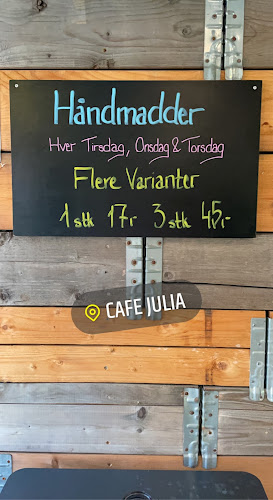 Håndmadder
Hver Tirsdag, Onsdag & Torsdag
Flere Varianter
1 stk 17,- 3 stk 45,-
CAFE JULIA